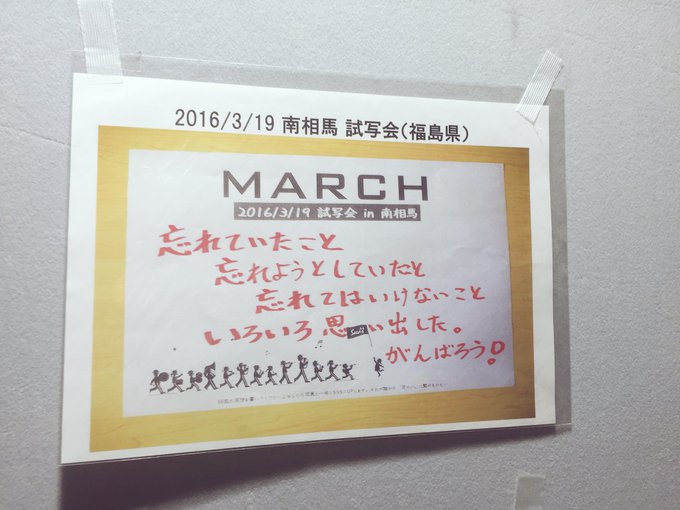 2016/3/19 南相馬 試写会(福島県)
MARCH
2016/3/19 試写会 in 南相馬
忘れていたこと
忘れようとしていたと
忘れてはいけないこと
いろいろ思い出した。
がんばろう!